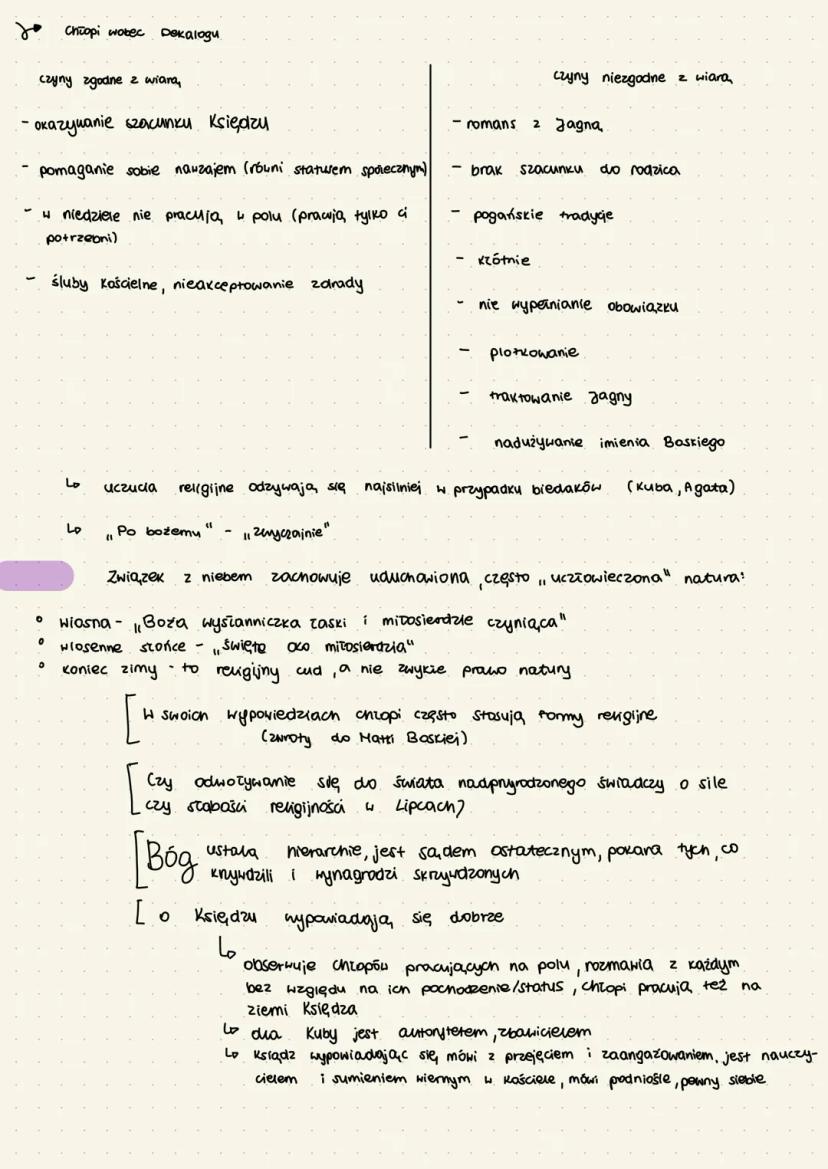 Chłopi wobec Dekalogu
czyny zgodne z wiarą
- okazywanie szacunku Księdzu
- pomaganie sobie nawzajem (równi statusem społecznym)
- w niedziele nie pracują w polu (pracują tylko ci
potrzebni)
- śluby kościelne, nieakceptowanie zdrady
czyny niezgodne z wiarą
- romans z Jagną
- brak szacunku do rodzica
- pogańskie tradycje
- kłótnie
- nie wypełnianie obowiązku
- plotkowanie
- traktowanie Jagny
- nadużywanie imienia Boskiego
↳ uczucia religijne odzywają się najsilniej w przypadku biedaków (Kuba, Agata)
↳ „Po bożemu" - „zwyczajnie"
Związek z niebem zachowuje uduchowiona, często „uczłowieczona" natura:
° wiosna - „Boża wysłanniczka łaski i miłosierdzie czyniąca"
° wiosenne słońce - „święte oko miłosierdzia"
° koniec zimy - to religijny cud, a nie zwykłe prawo natury
W swoich wypowiedziach chłopi często stosują formy religijne
(zwroty do Matki Boskiej)
Czy odwoływanie się do świata nadprzyrodzonego świadczy o sile
czy słabości religijności w Lipcach?
Bóg ustala hierarchie, jest sądem ostatecznym, pokara tych, co
krzywdzili i wynagrodzi skrzywdzonych
o Księdzu wypowiadają się dobrze
↳ obserwuje chłopów pracujących na polu, rozmawia z każdym
bez względu na ich pochodzenie/status, chłopi pracują też na
ziemi Księdza
↳ dla Kuby jest autorytetem, zbawicielem
↳ Ksiądz wypowiadając się mówi z przejęciem i zaangażowaniem, jest nauczy-
cielem i sumieniem wiernym w kościele, mówi podniośle, pewny siebie